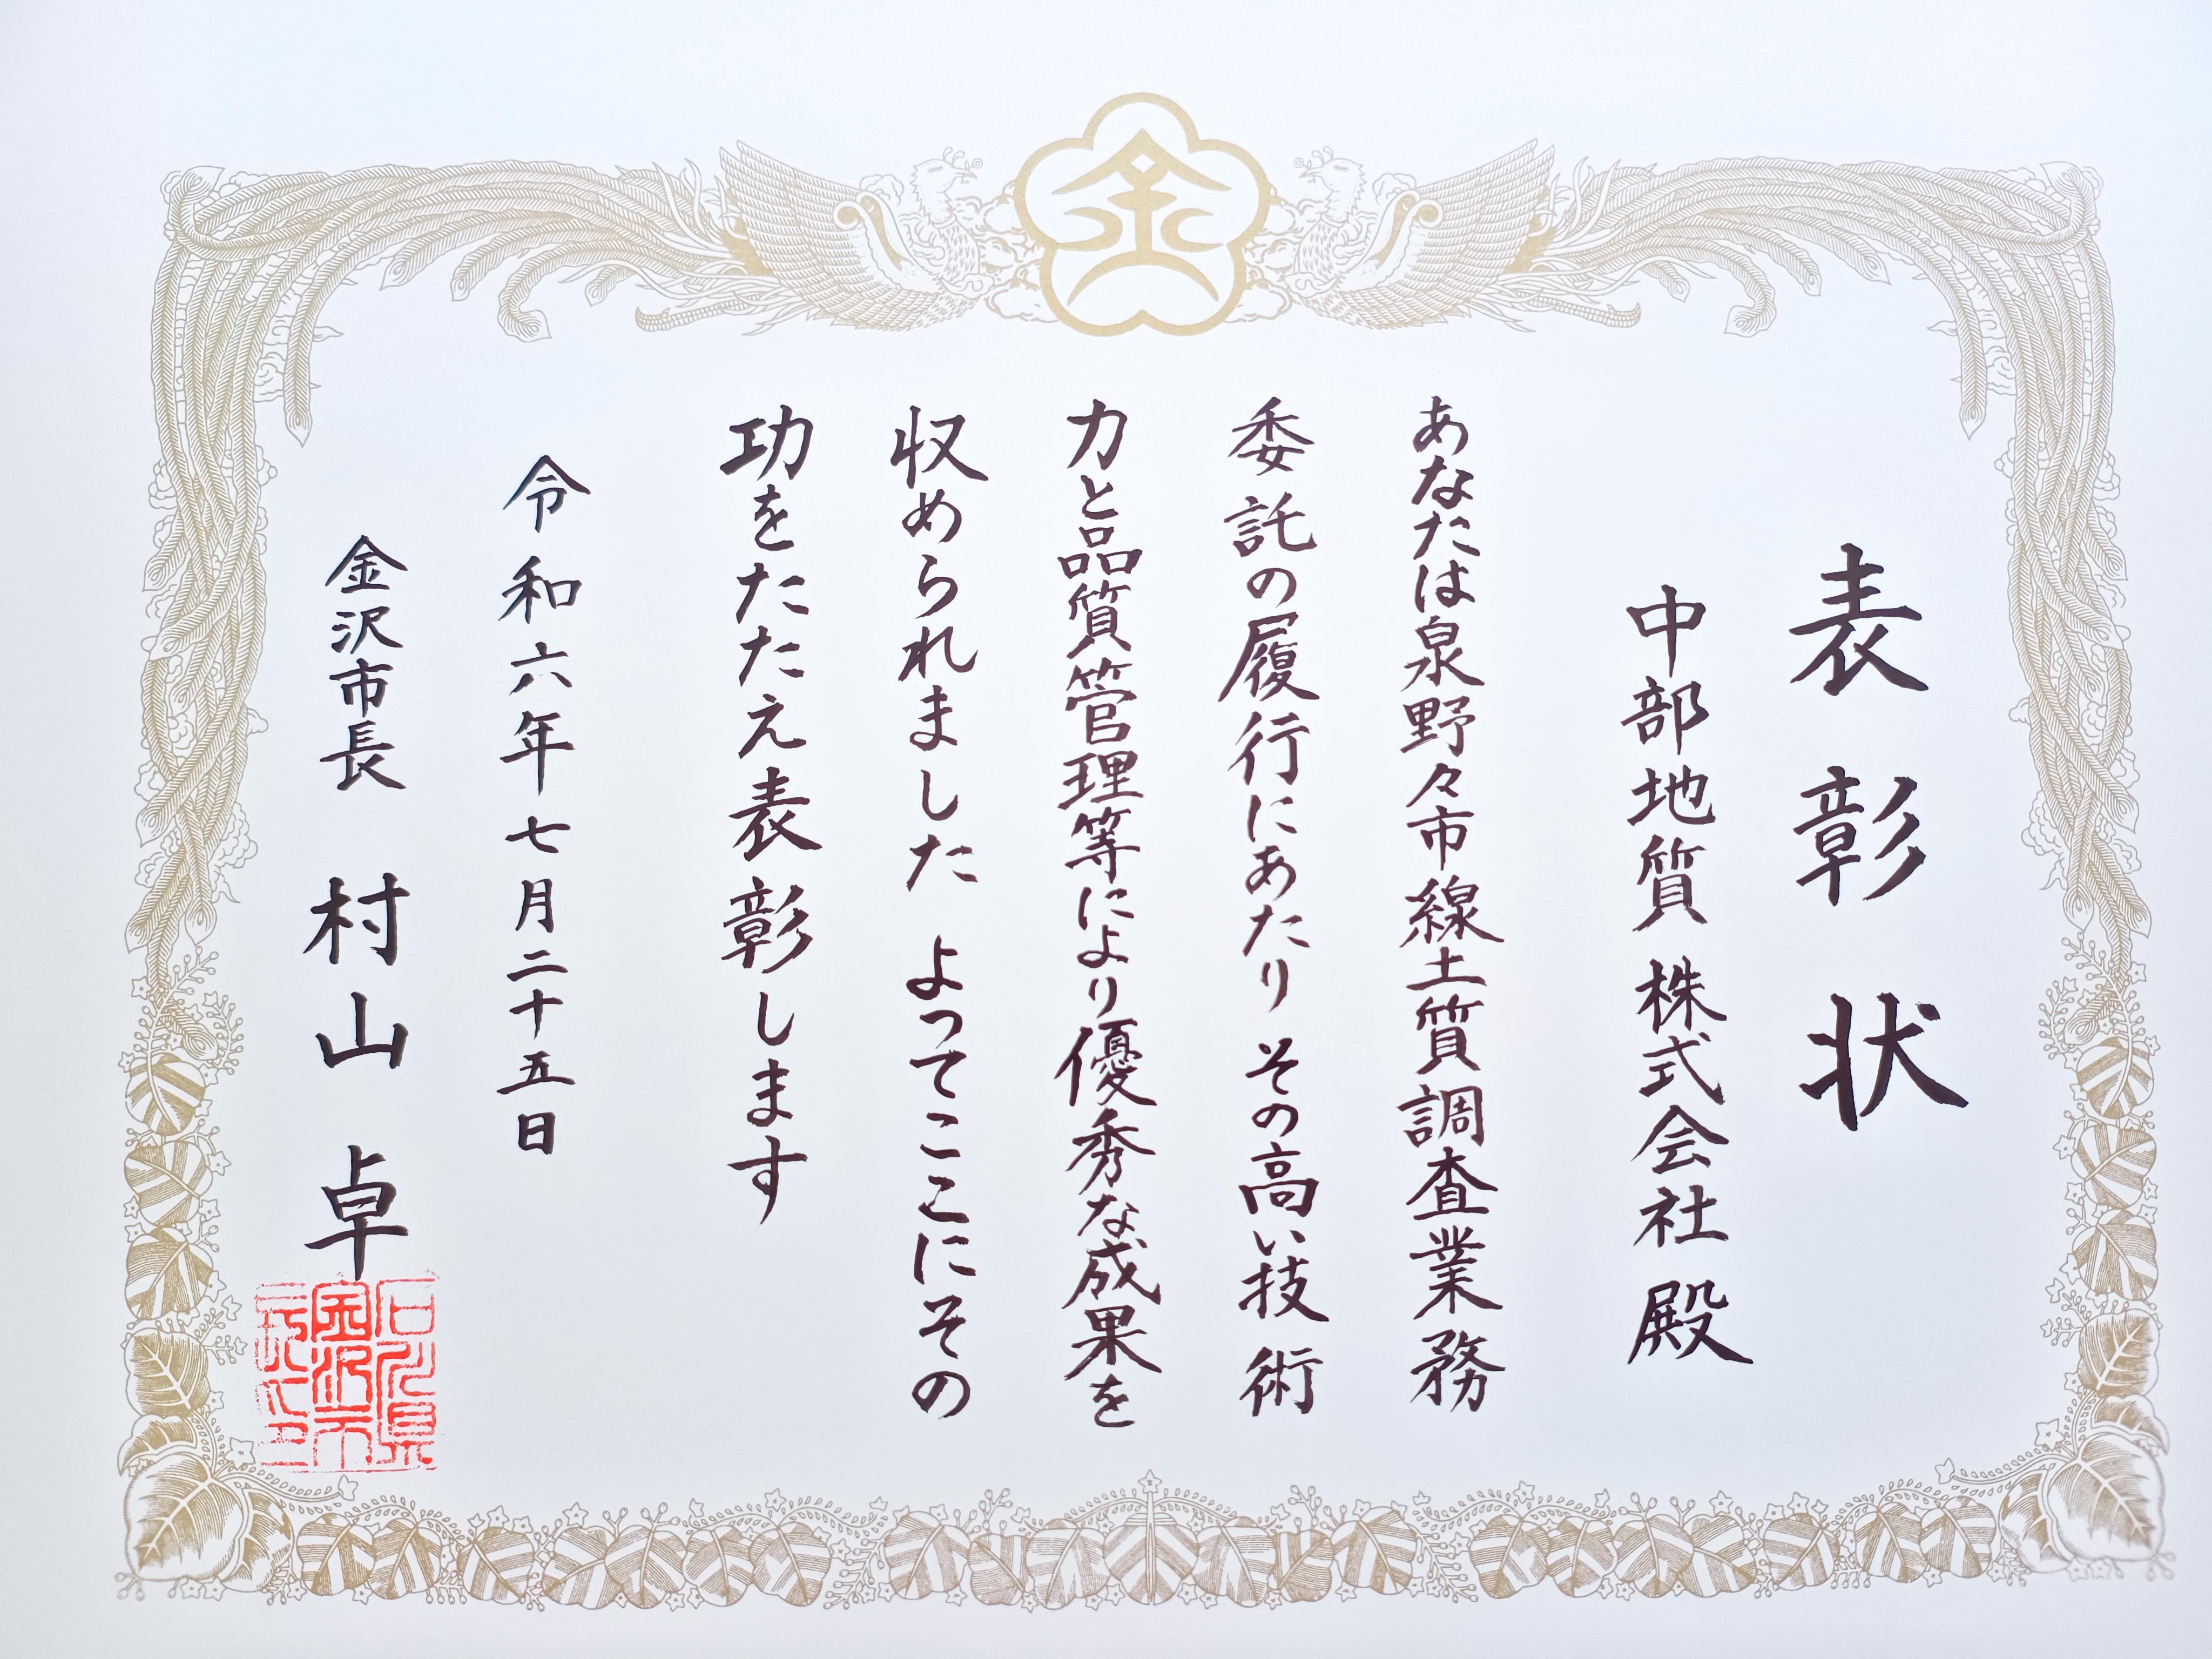 金
表彰状
中部地質株式会社殿
あなたは泉野々市線土質調査業務
委託の履行にあたり その高い技術
力と品質管理等により優秀な成果を
収められました よってここにその
功をたたえ表彰します
令和六年七月二十五日
金沢市長 村山 卓
石川県
金沢市
長之印